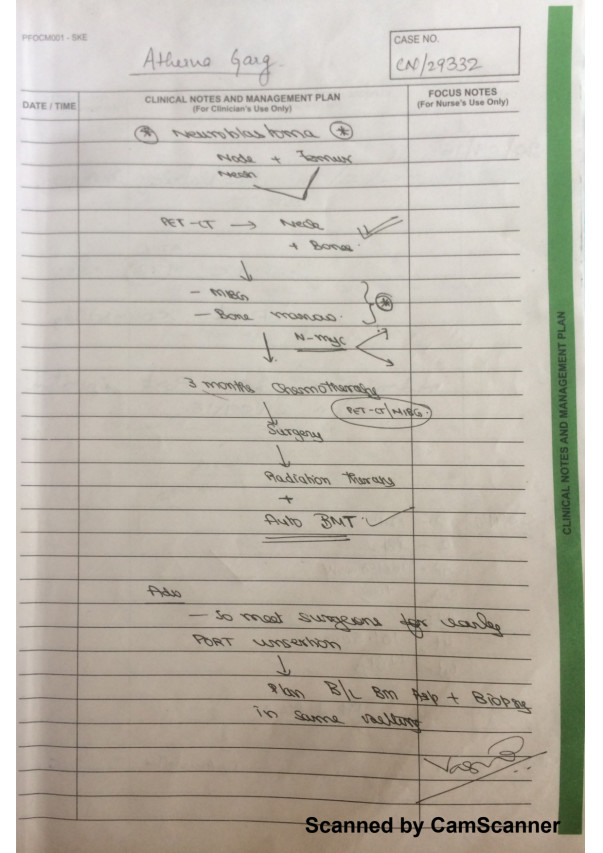 PFOCM001 - SKE
Atherva Garg.
CASE NO.
CN/29332
DATE / TIME
CLINICAL NOTES AND MANAGEMENT PLAN
(For Clinician's Use Only)
FOCUS NOTES
(For Nurse's Use Only)
Neuroblastoma
Node + Femur
Neck
PET-CT → Neck
+ Bones.
- MIBG
- Bone marrow.
N-myc
3 months Chemotherapy
PET-CT/MIBG.
Surgery
Radiation therapy
+
Auto BMT.
Adv
- So meet surgeons for early
PORT insertion
Plan B/L BM Asp + Biopsy
in same setting
CLINICAL NOTES AND MANAGEMENT PLAN
Scanned by CamScanner